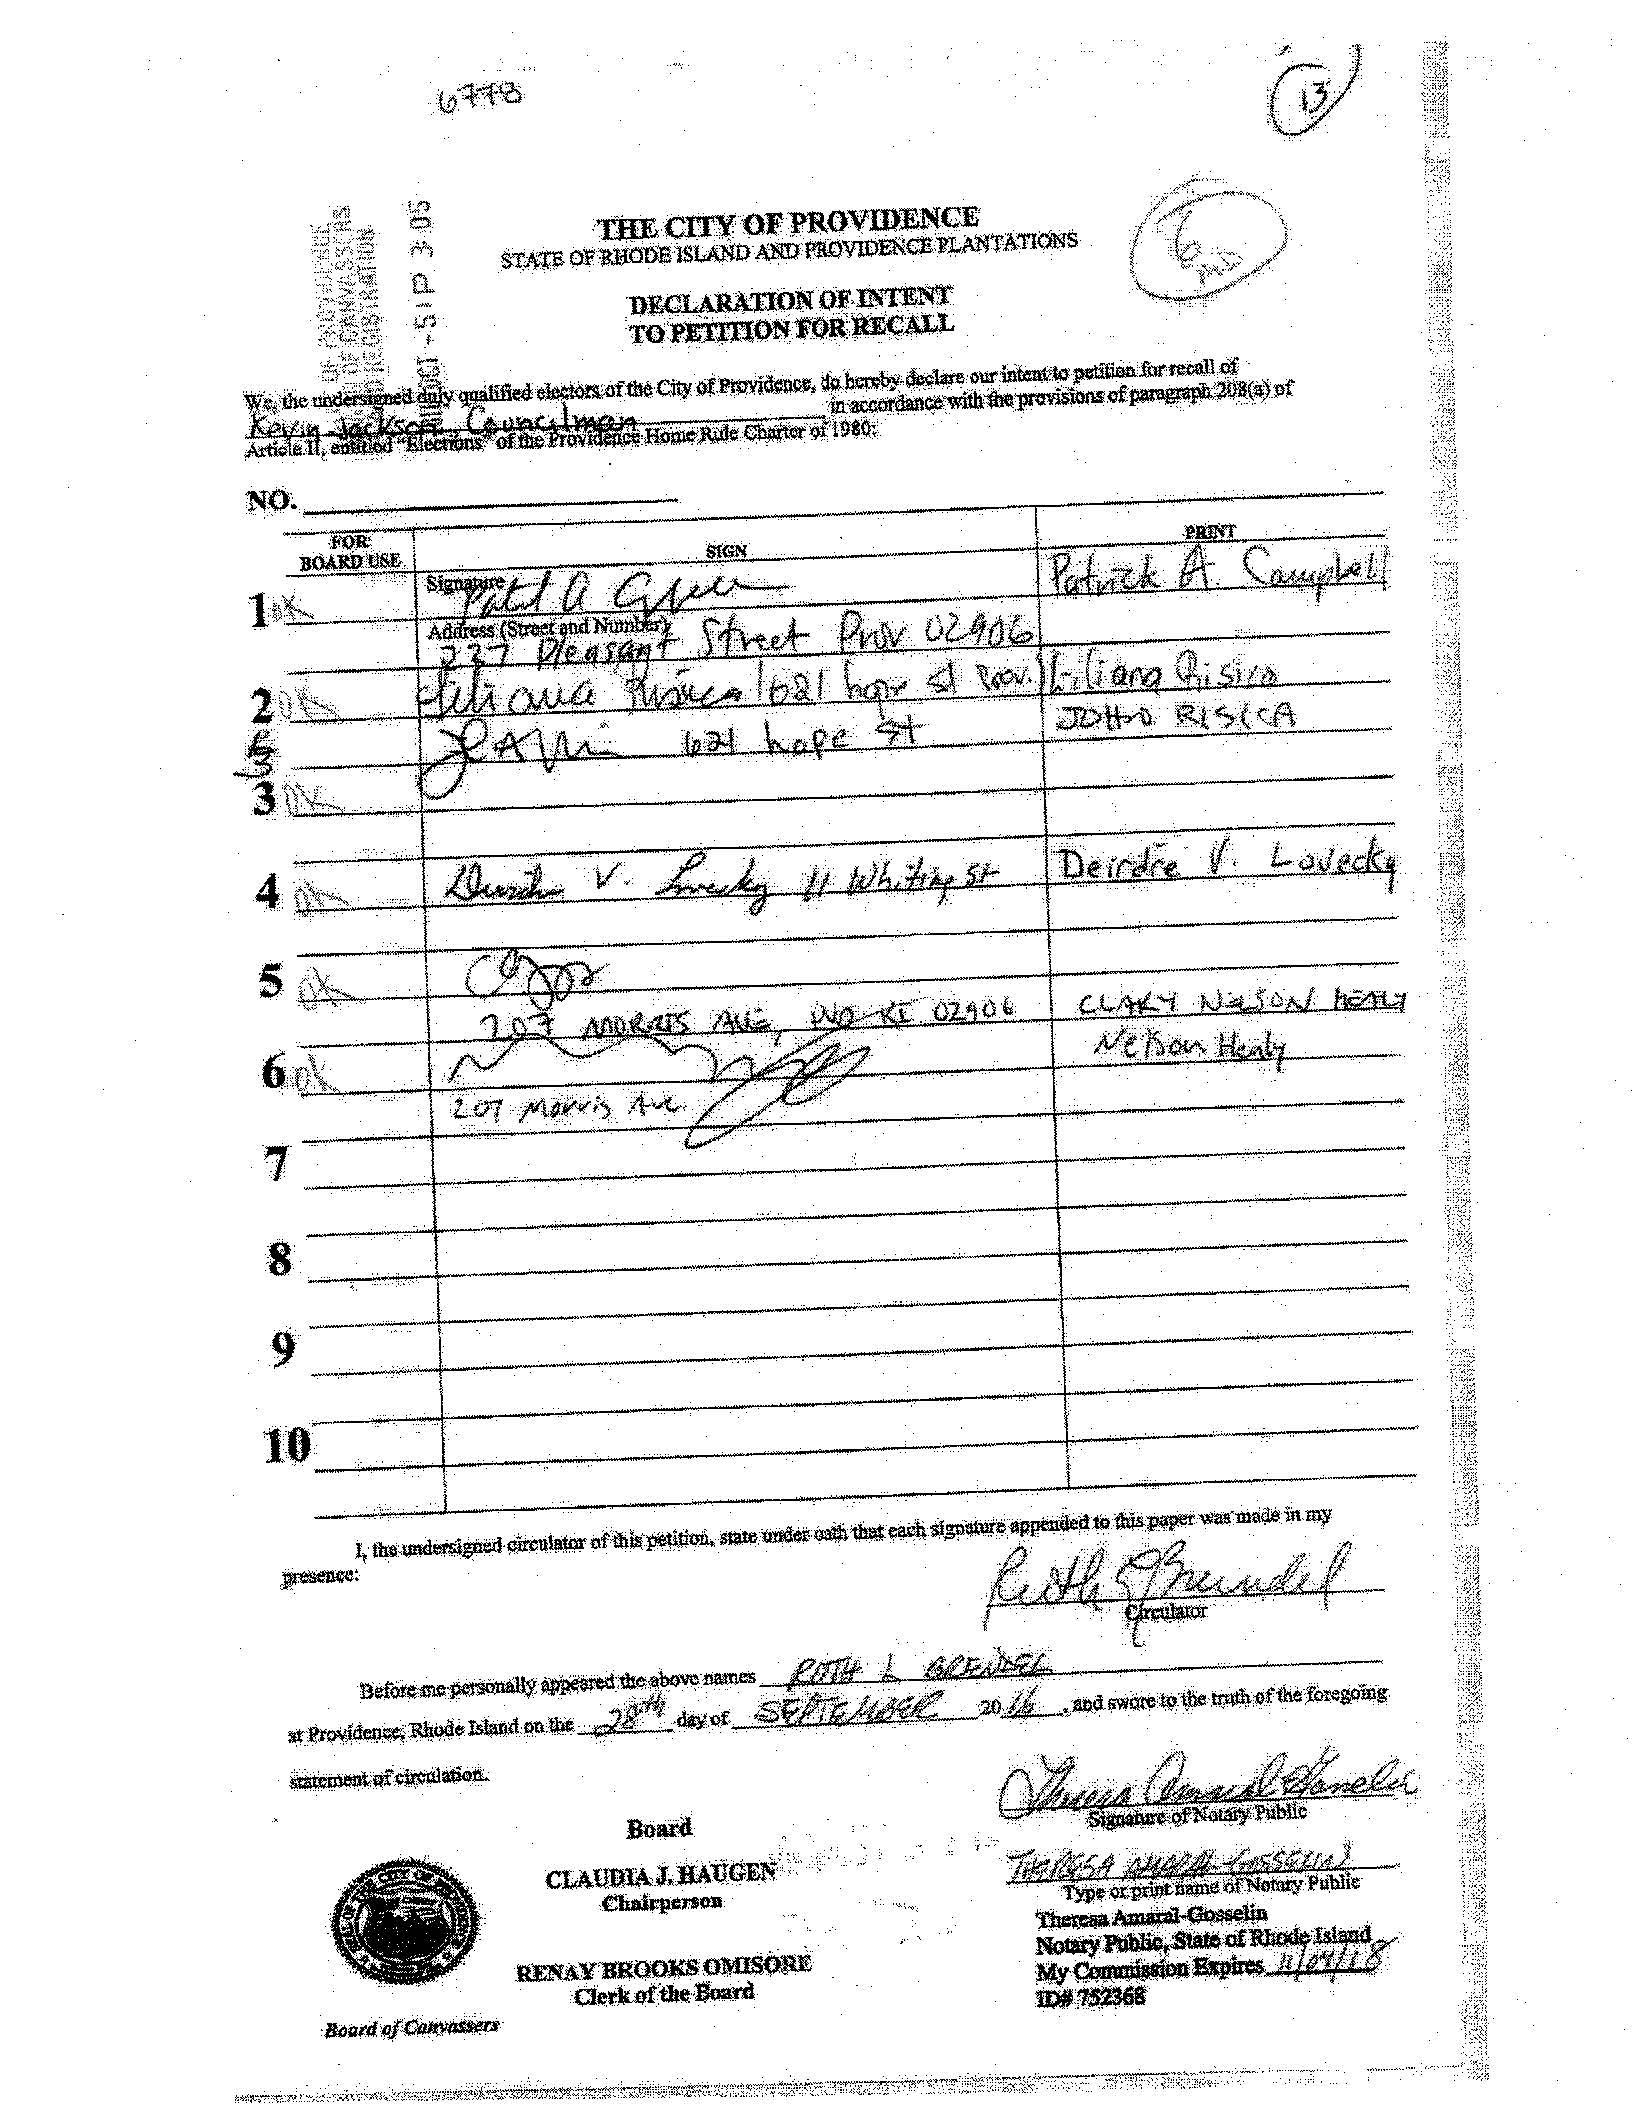 6778
13
6
THE CITY OF PROVIDENCE
STATE OF RHODE ISLAND AND PROVIDENCE PLANTATIONS
DECLARATION OF INTENT
TO PETITION FOR RECALL
OF CANVASSERS
REGISTRATION
OCT -5 P 3 05
We, the undersigned duly qualified electors of the City of Providence, do hereby declare our intent to petition for recall of
Kevin Jackson Councilman in accordance with the provisions of paragraph 208(a) of
Article II, entitled "Elections" of the Providence Home Rule Charter of 1980:
NO.
FOR BOARD USE
SIGN
PRINT
1 OK Signature Patrick A. Campbell
Address (Street and Number)
237 Pleasant Street Prov 02906
2 OK Liliana Risica 621 hope st Prov. Liliana Risica
621 hope st JOHN RISICA
3 OK
4 OK Deirdre V. Lovecky 11 Whiting St Deirdre V. Lovecky
5 OK
207 MORRIS AVE, PVD RI 02906 CLARY NELSON HEALY
6 OK Nelson Healy
207 Morris Ave.
7
8
9
10
I, the undersigned circulator of this petition, state under oath that each signature appended to this paper was made in my
presence:
Ruth L Grendel
Circulator
Before me personally appeared the above names RUTH L GRENDEL
at Providence, Rhode Island on the 28th day of SEPTEMBER 20 16, and swore to the truth of the foregoing
statement of circulation.
Theresa Amaral-Gosselin
Signature of Notary Public
Board
CLAUDIA J. HAUGEN
Chairperson
THERESA AMARAL-GOSSELIN
Type or print name of Notary Public
Theresa Amaral-Gosselin
Notary Public, State of Rhode Island
My Commission Expires 11/04/18
ID# 752368
RENAY BROOKS OMISORE
Clerk of the Board
Board of Canvassers